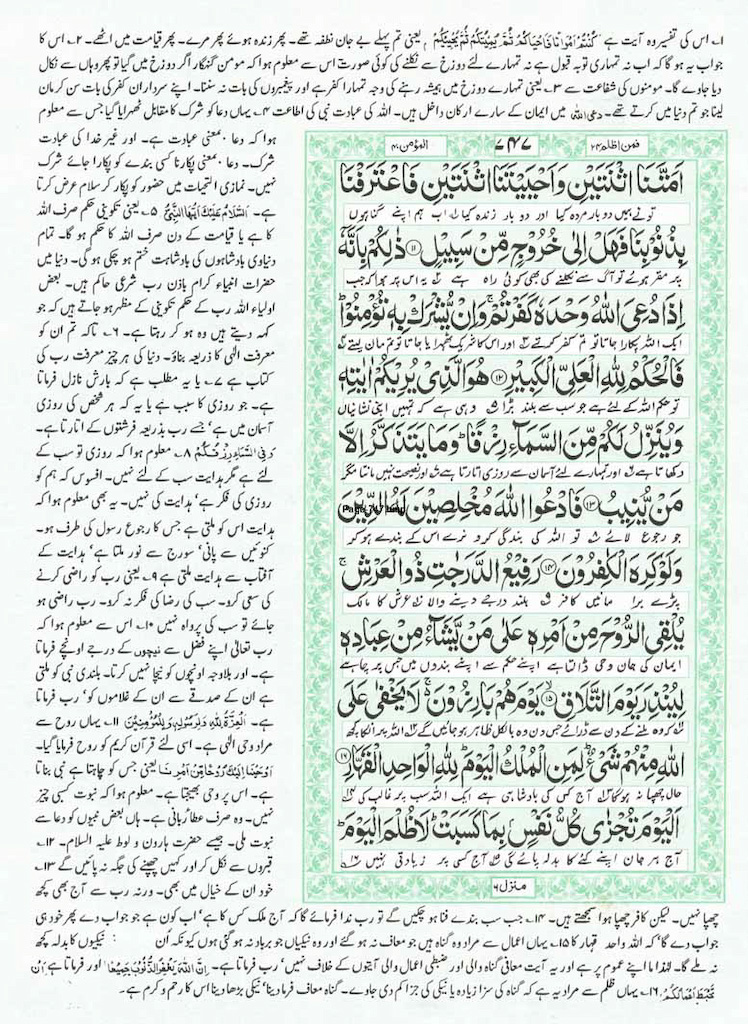 ۱۔ اس کی تفسیر وہ آیت ہے كُنْتُمْ اَمْوَاتًا فَاَحْيَاكُمْ ثُمَّ يُمِيْتُكُمْ ثُمَّ يُحْيِيْكُمْ یعنی تم پہلے بے جان نطفہ تھے۔ پھر زندہ ہوئے پھر مرے۔ پھر قیامت میں اٹھے۔ ۲۔ اس کا
جواب یہ ہو گا کہ اب نہ تمہاری توبہ قبول ہے نہ تمہارے لئے دوزخ سے نکلنے کی کوئی صورت اس سے معلوم ہوا کہ مومن گنہگار اگر دوزخ میں گیا تو پھر وہاں سے نکال
دیا جاوے گا۔ مومنوں کی شفاعت سے ۳۔ یعنی تمہارے دوزخ میں ہمیشہ رہنے کی وجہ تمہارا کفر ہے اور پیغمبروں کی بات نہ سننا۔ اپنے سرداران کفر کی بات سن کر مان
لینا جو تم دنیا میں کرتے تھے۔ دعی اللہ میں ایمان کے سارے ارکان داخل ہیں۔ اللہ کی عبادت نبی کی اطاعت ۴۔ یہاں دعا کو شرک کا مقابل ٹھہرایا گیا جس سے معلوم
ہوا کہ یہاں دعا بمعنی عبادت ہے۔ اور غیر خدا کی عبادت
شرک۔ دعا بمعنی پکارنا کسی بندے کو پکارا جائے شرک
نہیں۔ نمازی التحیات میں حضور کو پکار کر سلام عرض کرتا
ہے۔ اَلسَّلَامُ عَلَيْكَ اَيُّهَا النَّبِيُّ ۵۔ یعنی تکوینی حکم صرف اللہ
کا ہے یا قیامت کے دن صرف اللہ کا حکم ہو گا۔ تمام
دنیاوی بادشاہوں کی بادشاہت ختم ہو چکی ہو گی۔ دنیا میں
حضرات انبیاء کرام باذن رب شرعی حاکم ہیں۔ بعض
اولیاء اللہ رب کے حکم تکوینی کے مظہر ہو جاتے ہیں کہ جو
کہہ دیتے ہیں وہ ہو کر رہتا ہے۔ ۶۔ تاکہ تم ان کو
معرفت الٰہی کا ذریعہ بناؤ۔ دنیا کی ہر چیز معرفت رب کی
کتاب ہے ۷۔ یا یہ مطلب ہے کہ بارش نازل فرماتا
ہے۔ جو روزی کا سبب ہے یا یہ کہ ہر شخص کی روزی
آسمان میں ہے، جسے رب بذریعہ فرشتوں کے اتارتا ہے۔
وَفِي السَّمَاءِ رِزْقُكُمْ ۸۔ معلوم ہوا کہ روزی تو سب کے
لئے ہے مگر ہدایت سب کے لئے نہیں۔ افسوس کہ ہم کو
روزی کی فکر ہے، ہدایت کی نہیں۔ یہ بھی معلوم ہوا کہ
ہدایت اس کو ملتی ہے جس کا رجوع رسول کی طرف ہو۔
کنوئیں سے پانی، سورج سے نور ملتا ہے، ہدایت کے
آفتاب سے ہدایت ملتی ہے ۹۔ یعنی رب کو راضی کرنے
کی سعی کرو۔ سب کی رضا کی فکر نہ کرو۔ رب راضی ہو
جائے تو سب کی پرواہ نہیں ۱۰۔ اس سے معلوم ہوا کہ
رب تعالیٰ اپنے فضل سے نیچوں کے درجے اونچے فرماتا
ہے۔ اور بلاوجہ اونچوں کو نیچا نہیں کرتا۔ بلندی نبی کو ملتی
ہے ان کے صدقے سے ان کے غلاموں کو، رب فرماتا
ہے۔ اَلْعِزَّةُ لِلّٰهِ وَلِرَسُوْلِهٖ وَلِلْمُؤْمِنِيْنَ ۱۱۔ یہاں روح سے
مراد وحی الٰہی ہے۔ اسی لئے قرآن کریم کو روح فرمایا گیا۔
اَوْحَيْنَا اِلَيْكَ رُوْحًا مِّنْ اَمْرِنَا یعنی جس کو چاہتا ہے نبی بناتا
ہے۔ اس پر وحی بھیجتا ہے۔ معلوم ہوا کہ نبوت کسبی چیز
نہیں۔ وہ صرف عطا ربانی ہے۔ ہاں بعض نبیوں کو دعا سے
نبوت ملی۔ جیسے حضرت ہارون و لوط علیہ السلام۔ ۱۲۔
قبروں سے نکل کر اور کہیں چھپنے کی جگہ نہ پائیں گے ۱۳۔
خود ان کے خیال میں بھی۔ ورنہ رب سے آج بھی کچھ
فمن اظلم ۲۴
۷۴۷
المؤمن ۴۰
اَمَتَّنَا اثْنَتَيْنِ وَاَحْيَيْتَنَا اثْنَتَيْنِ فَاعْتَرَفْنَا
تو نے ہمیں دو بار مردہ کیا اور دو بار زندہ کیا اب ہم اپنے گناہوں
بِذُنُوْبِنَا فَهَلْ اِلٰى خُرُوْجٍ مِّنْ سَبِيْلٍ ۱۱ ذٰلِكُمْ بِاَنَّهٗٓ
پر مقر ہوئے تو آگ سے نکلنے کی بھی کوئی راہ ہے یہ اس پر ہوا کہ جب
اِذَا دُعِيَ اللّٰهُ وَحْدَهٗ كَفَرْتُمْ ۚ وَاِنْ يُّشْرَكْ بِهٖ تُؤْمِنُوْا ؕ
ایک اللہ پکارا جاتا تو تم کفر کرتے اور اس کا شریک ٹھہرایا جاتا تو تم مان لیتے
فَالْحُكْمُ لِلّٰهِ الْعَلِيِّ الْكَبِيْرِ ۱۲ هُوَ الَّذِيْ يُرِيْكُمْ اٰيٰتِهٖ
تو حکم اللہ کے لئے ہے جو سب سے بلند بڑا وہی ہے کہ تمہیں اپنی نشانیاں
وَيُنَزِّلُ لَكُمْ مِّنَ السَّمَآءِ رِزْقًا ؕ وَمَا يَتَذَكَّرُ اِلَّا
دکھاتا ہے اور تمہارے لئے آسمان سے روزی اتارتا ہے اور نصیحت نہیں مانتا مگر
مَنْ يُّنِيْبُ ۱۳ فَادْعُوا اللّٰهَ مُخْلِصِيْنَ لَهُ الدِّيْنَ
جو رجوع لائے تو اللہ کی بندگی کرو نرے اس کے بندے ہو کر
وَلَوْ كَرِهَ الْكٰفِرُوْنَ ۱۴ رَفِيْعُ الدَّرَجٰتِ ذُو الْعَرْشِ ۚ
پڑے برا مانیں کافر بلند درجے دینے والا عرش کا مالک
يُلْقِي الرُّوْحَ مِنْ اَمْرِهٖ عَلٰى مَنْ يَّشَآءُ مِنْ عِبَادِهٖ
ایمان کی جان وحی ڈالتا ہے اپنے حکم سے اپنے بندوں میں جس پر چاہے
لِيُنْذِرَ يَوْمَ التَّلَاقِ ۱۵ يَوْمَ هُمْ بَارِزُوْنَ ۚ لَا يَخْفٰى عَلَى
کہ وہ ملنے کے دن سے ڈرائے جس دن وہ بالکل ظاہر ہو جائیں گے اللہ پر ان کا کچھ
اللّٰهِ مِنْهُمْ شَيْءٌ ؕ لِمَنِ الْمُلْكُ الْيَوْمَ ؕ لِلّٰهِ الْوَاحِدِ الْقَهَّارِ ۱۶
حال چھپا نہ ہوگا آج کس کی بادشاہی ہے ایک اللہ سب پر غالب کی
اَلْيَوْمَ تُجْزٰى كُلُّ نَفْسٍۭ بِمَا كَسَبَتْ ؕ لَا ظُلْمَ الْيَوْمَ ؕ
آج ہر جان اپنے کئے کا بدلہ پائے گی آج کسی پر زیادتی نہیں
منزل ۶
چھپا نہیں۔ لیکن کافر چھپا ہوا سمجھتے ہیں۔ ۱۴۔ جب سب بندے فنا ہو چکیں گے تو رب ندا فرمائے گا کہ آج ملک کس کا ہے، اب کون ہے جو جواب دے پھر خود ہی
جواب دے گا، کہ اللہ واحد قہار کا ۱۵۔ یہاں اعمال سے مراد وہ گناہ ہیں جو معاف نہ ہو گئے اور وہ نیکیاں جو برباد نہ ہو گئی ہوں کیونکہ اُن نیکیوں کا بدلہ کچھ
نہ ملے گا۔ لہٰذا ما اپنے عموم پر ہے اور یہ آیت معافی گناہ والی اور ضبطی اعمال والی آیتوں کے خلاف نہیں، رب فرماتا ہے۔ اِنَّ اللّٰهَ يَغْفِرُ الذُّنُوْبَ جَمِيْعًا اور فرماتا ہے اَنْ
تَحْبَطَ اَعْمَالُكُمْ ۱۶۔ یہاں ظلم سے مراد یہ ہے کہ گناہ کی سزا زیادہ یا نیکی کی جزا کم دی جاوے۔ گناہ معاف فرما دینا، نیکی بڑھا دینا اس کا رحم و کرم ہے۔